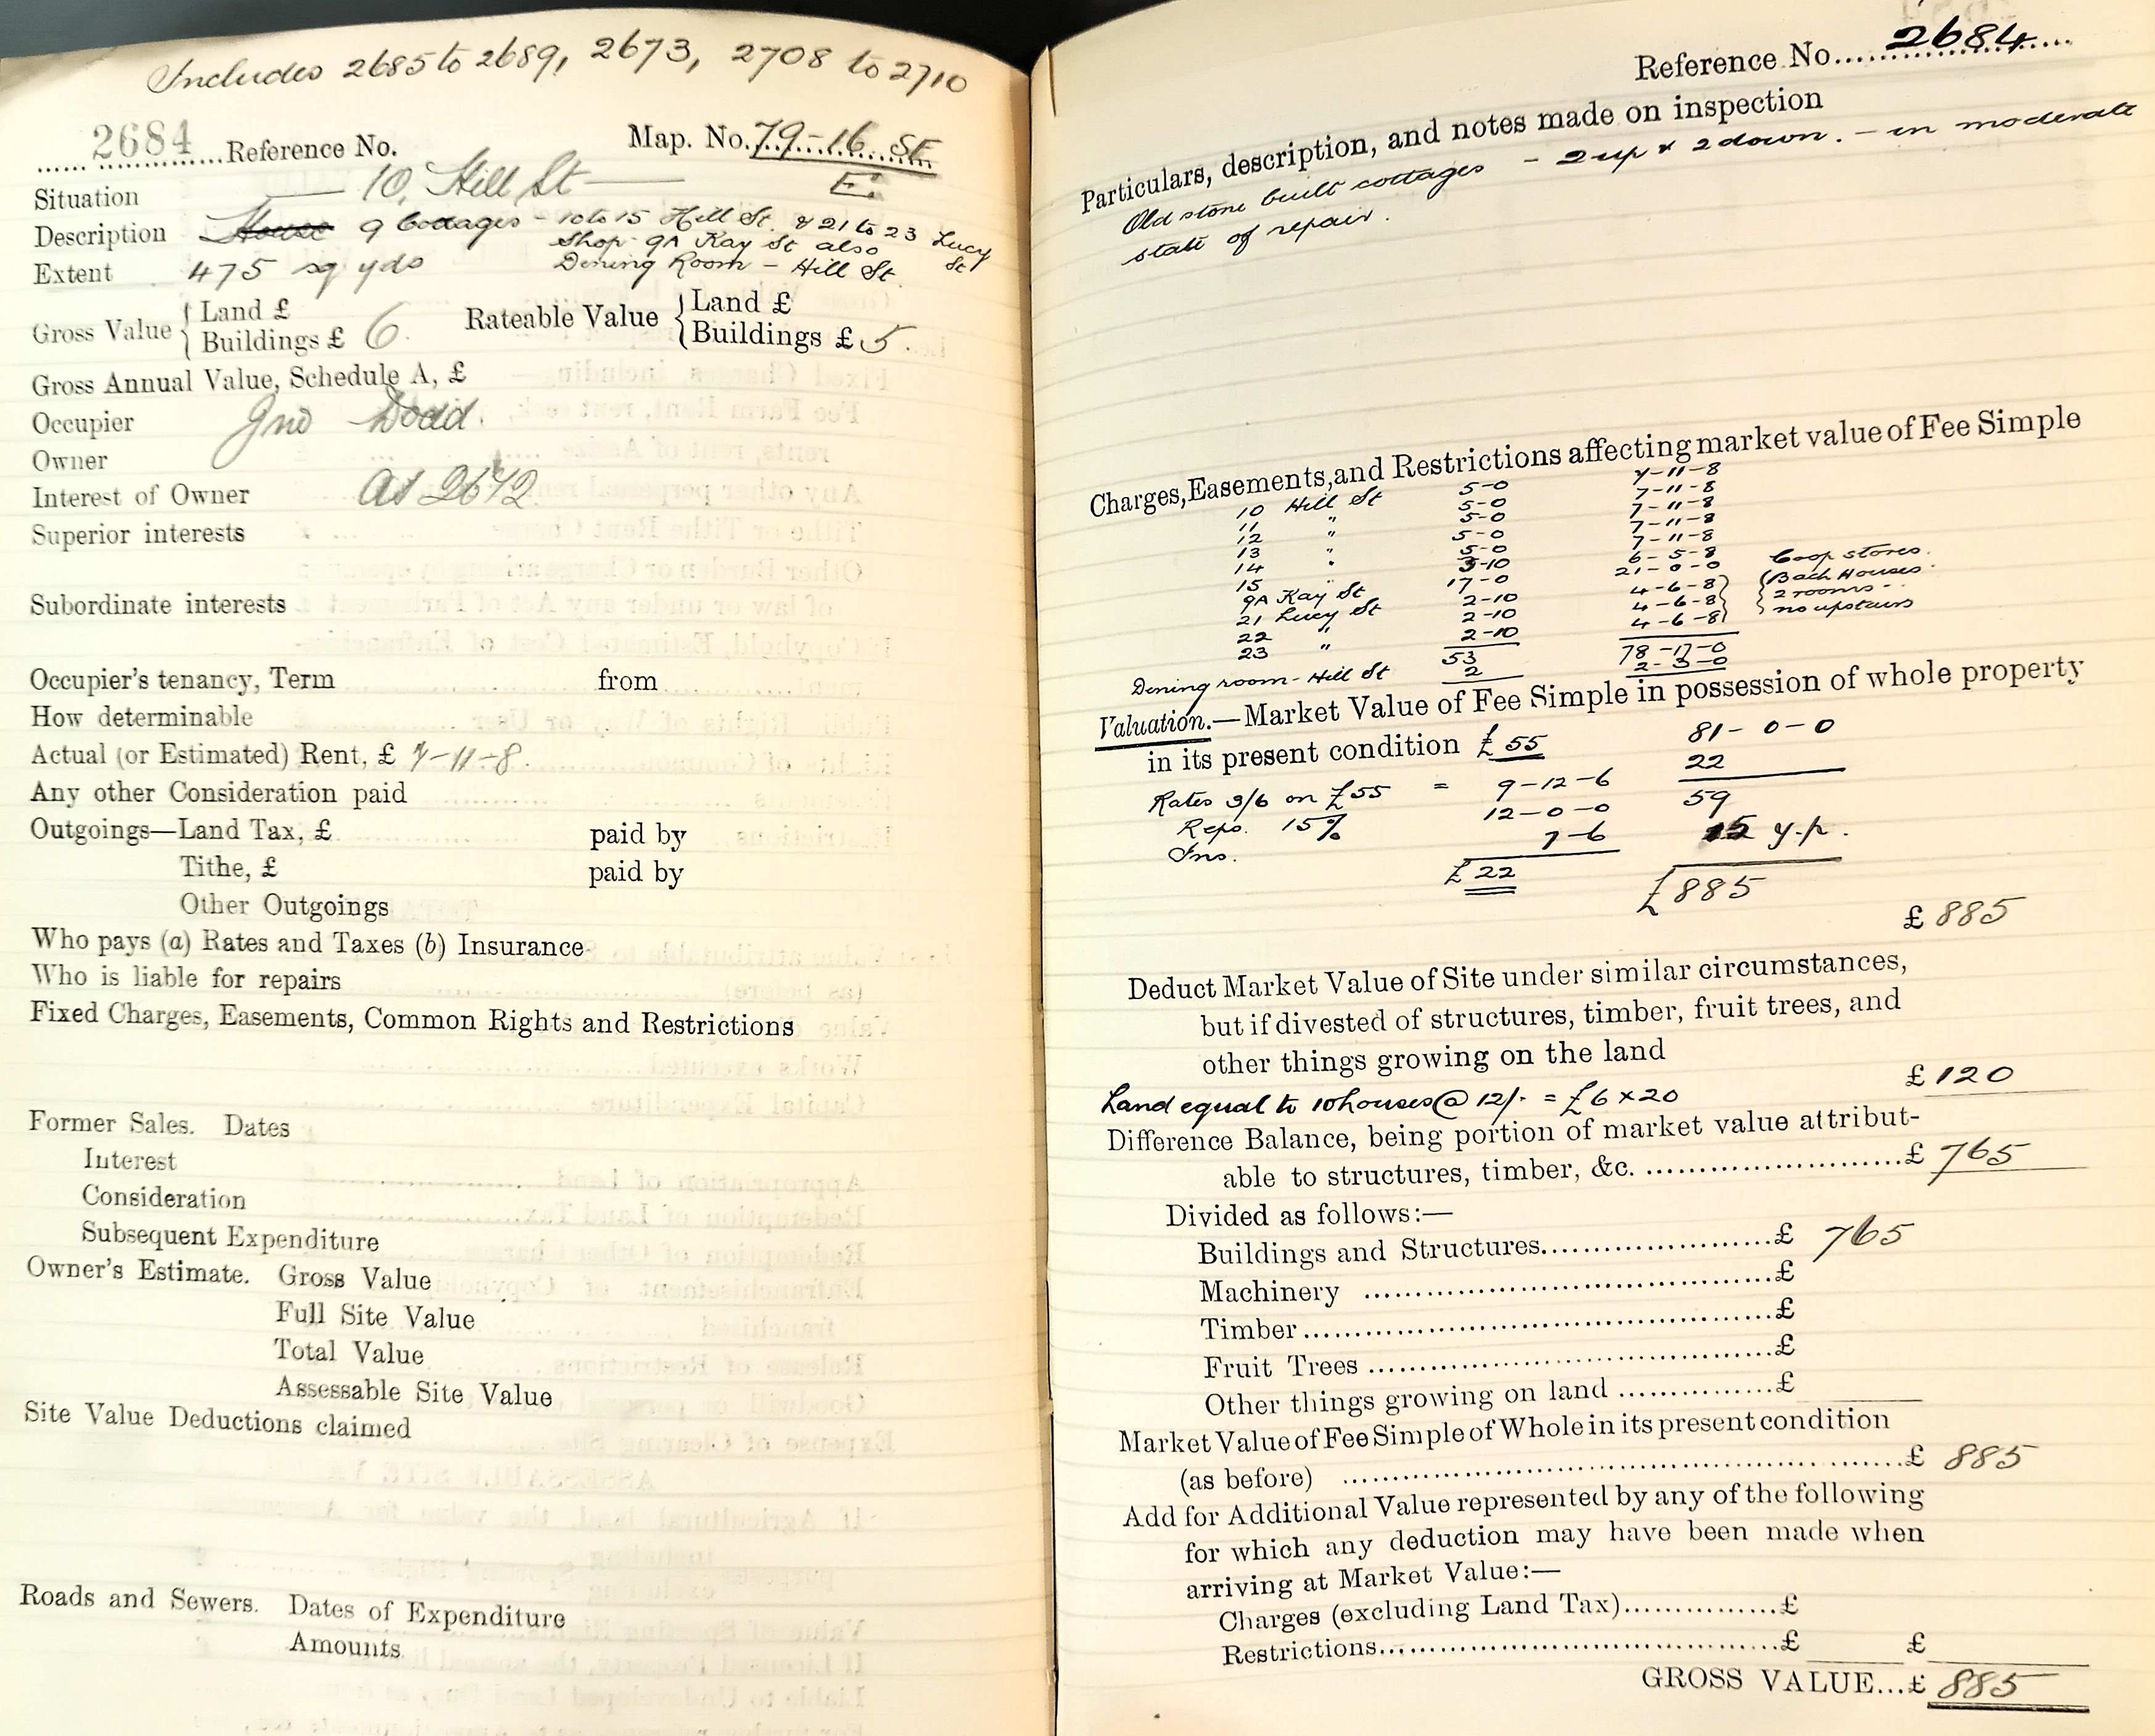 Includes 2685 to 2689, 2673, 2708 to 2710
2684 Reference No. Map. No. 79-16. SE
E.
Situation — 10, Hill St —
Description House 9 Cottages - 10 to 15 Hill St. & 21 to 23 Lucy St
Shop 9A Kay St also
Extent 475 sq yds Dining Room - Hill St.
Gross Value { Land £
Buildings £ 6. Rateable Value { Land £
Buildings £ 5.
Gross Annual Value, Schedule A, £
Occupier Jno Dodd.
Owner
Interest of Owner As 2672
Superior interests
Subordinate interests
Occupier's tenancy, Term from
How determinable
Actual (or Estimated) Rent, £ 7-11-8.
Any other Consideration paid
Outgoings—Land Tax, £ paid by
Tithe, £ paid by
Other Outgoings
Who pays (a) Rates and Taxes (b) Insurance
Who is liable for repairs
Fixed Charges, Easements, Common Rights and Restrictions
Former Sales. Dates
Interest
Consideration
Subsequent Expenditure
Owner's Estimate. Gross Value
Full Site Value
Total Value
Assessable Site Value
Site Value Deductions claimed
Roads and Sewers. Dates of Expenditure
Amounts
Reference No. 2684
Particulars, description, and notes made on inspection
Old stone built cottages - 2 up & 2 down. - in moderate
state of repair.
Charges, Easements, and Restrictions affecting market value of Fee Simple
10 Hill St 5-0 7-11-8
11 " 5-0 7-11-8
12 " 5-0 7-11-8
13 " 5-0 7-11-8
14 " 5-0 7-11-8
15 " 3-10 6-5-8
9A Kay St 17-0 21-0-0 Coop stores.
21 Lucy St 2-10 4-6-8 } { Back Houses.
22 " 2-10 4-6-8 } { 2 rooms -
23 " 2-10 4-6-8 } { no upstairs
53 78-17-0
Dining room - Hill St 2 2-3-0
Valuation.—Market Value of Fee Simple in possession of whole property
in its present condition £55 81-0-0
Rates 3/6 on £55 = 9-12-6 22
Reps. 15% 12-0-0 59
Ins. 7-6 15 y.p.
£22 £885
£ 885
Deduct Market Value of Site under similar circumstances,
but if divested of structures, timber, fruit trees, and
other things growing on the land
Land equal to 10 houses @ 12/- = £6 x 20 £ 120
Difference Balance, being portion of market value attribut-
able to structures, timber, &c. £ 765
Divided as follows:—
Buildings and Structures £ 765
Machinery £
Timber £
Fruit Trees £
Other things growing on land £
Market Value of Fee Simple of Whole in its present condition
(as before) £ 885
Add for Additional Value represented by any of the following
for which any deduction may have been made when
arriving at Market Value:—
Charges (excluding Land Tax) £
Restrictions £ £
GROSS VALUE...£ 885